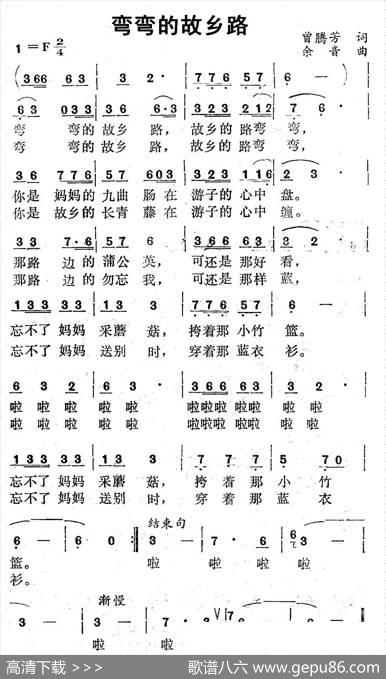 弯弯的故乡路
曾腾芳 词
1=F 2/4 余音 曲
(366 63 | 3 2· | 776 57 | 6 — |
63 033 | 36 6·3 | 323 212 | 7 6· |
弯 弯的 故乡 路， 故乡的 路弯 弯，
弯 弯的 故乡 路， 故乡的 路弯 弯，
36 776 | 576 | 323 116 | 2 3· |
你是 妈妈的 九曲 肠在 游子的 心中 盘。
你是 故乡的 长青 藤在 游子的 心中 缠。
33 7·6 | 57 6 | 363 03 | 3 2· |
那路 边的 蒲公 英， 可还是 那好 看，
那路 边的 勿忘 我， 可还是 那样 蓝，
133 33 | 13 3 | 776 57 | 6 — |
忘不了 妈妈 采蘑 菇， 挎着那 小竹 篮。
忘不了 妈妈 送别 时， 穿着那 蓝衣 衫。
6 3 2 | 6 3 | 2 · | 366 63 | 3 2· |
啦 啦 啦 啦 啦 啦 啦啦啦 啦啦 啦 啦
啦 啦 啦 啦 啦 啦 啦啦啦 啦啦 啦 啦
133 33 | 13 3 | 7 7 6 | 5 70 |
忘不了 妈妈 采蘑 菇， 挎 着 那 小 竹
忘不了 妈妈 送别 时， 穿 着 那 蓝 衣
结束句
6 — | 6 0 :‖ 3 — | 7 — | 3 · | 6 — |
篮。 啦 啦 啦 啦
衫。
渐慢
3 — | 3 — | 3 · | 7 — | 7 — | 7 · ‖
啦 啦
高清下载 >>> 歌谱八六 www.gepu86.com